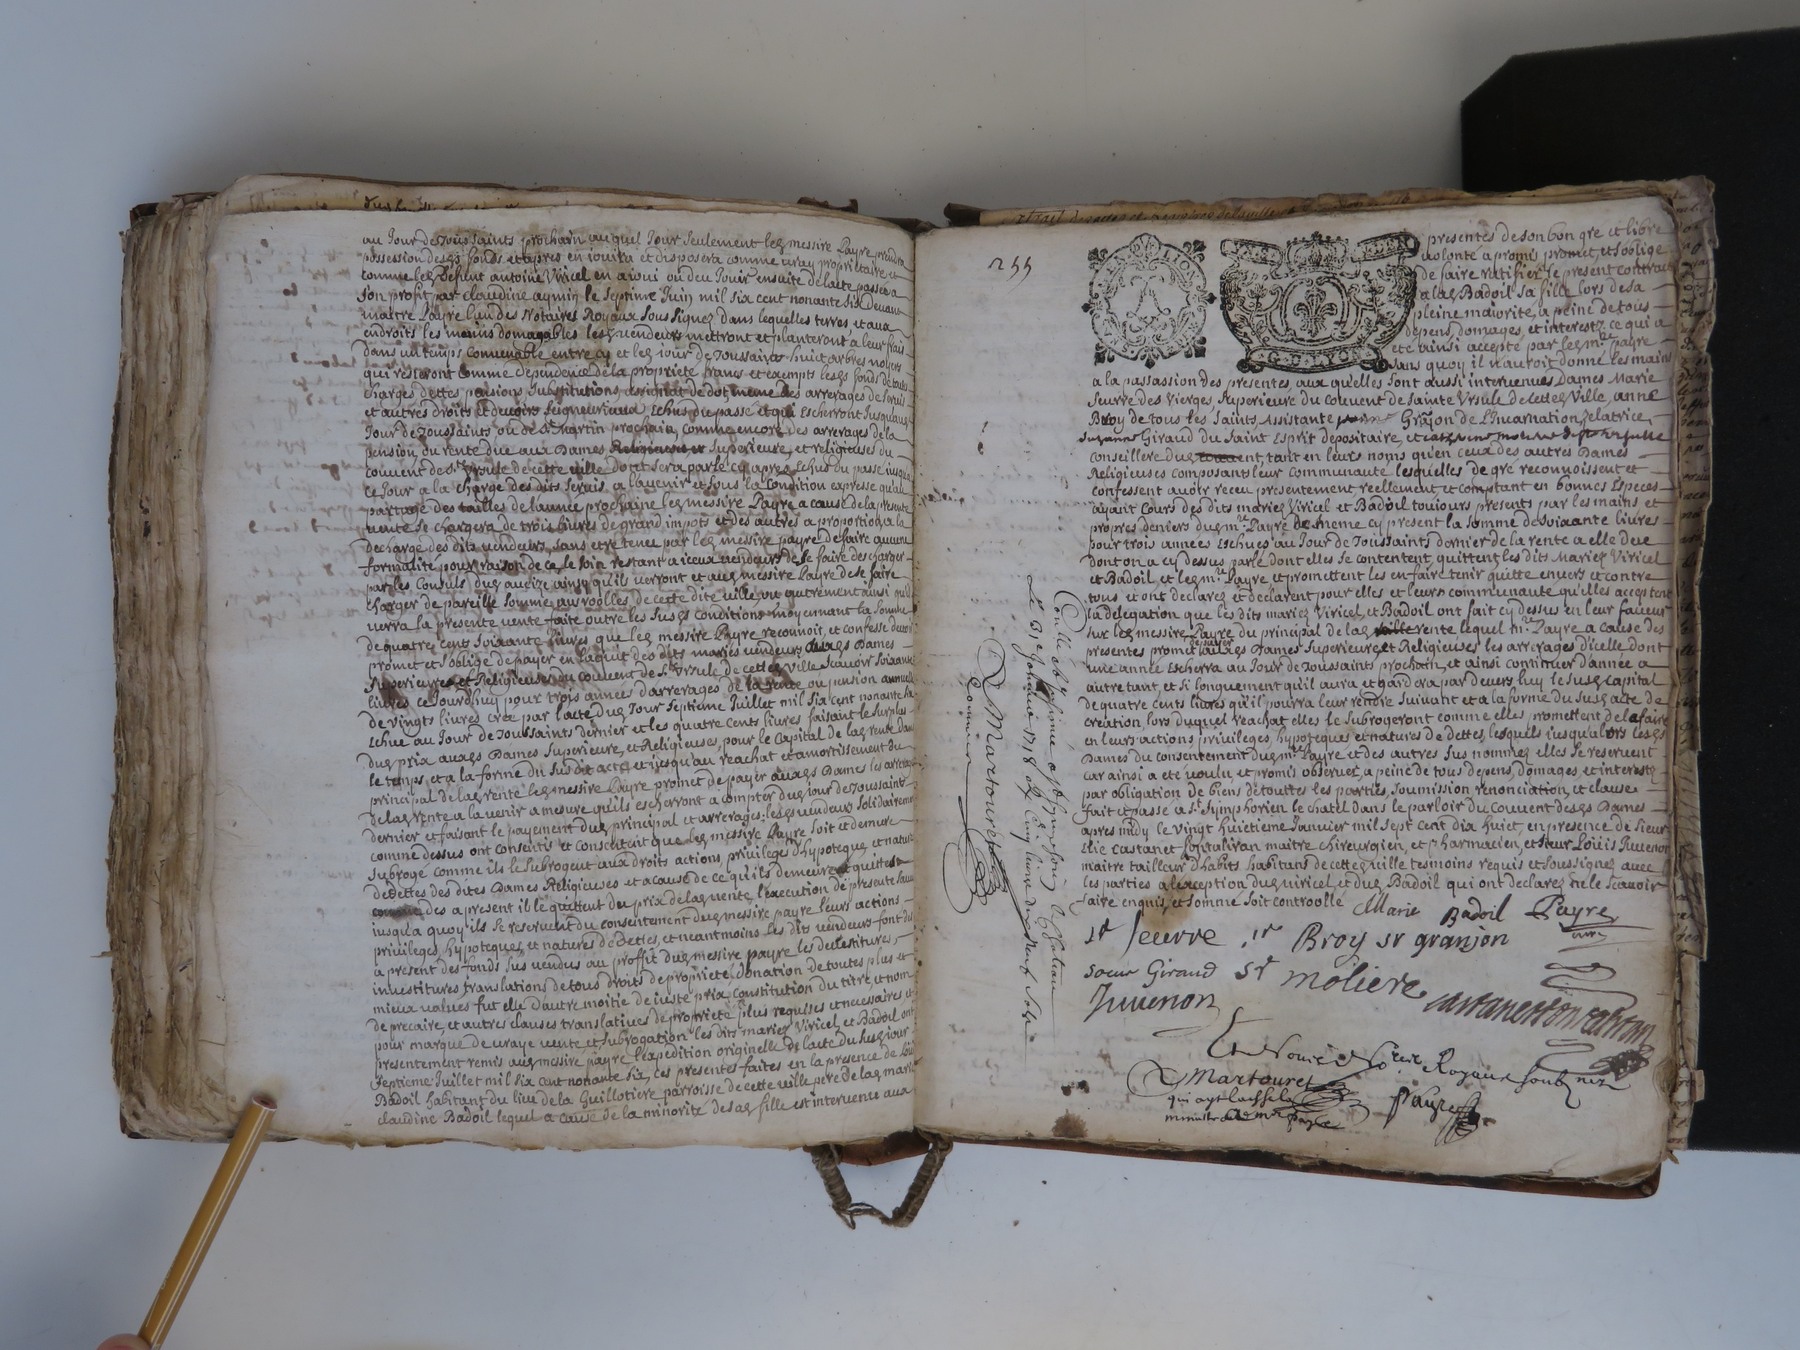 au Jour de Toussaints prochain auquel Jour seulement ledt messire Payre prendra
possession desdts fonds et apres en iouira et disposera comme vray proprietaire et
comme ledt deffunt antoine Viricel en a ioui ou deu Jouir ensuite de lacte passé a
son profit par claudine aymin le septieme Juin mil six cent nonante six devant
maitre Payre l'un des Notaires Royaux soussignez dans lequelles terres, et aux
endroits les moins domagables lesdts vendeurs mettront et planteront a leur frais
dans un temps convenable entre cy et ledt iour de Toussaints huict arbres noyers
qui resteront comme dependence de la proprieté francs et exempts lesdts fonds de toutes
charges dettes pensions substitutions, assignat de dot meme des arrerages de servis
et autres droits et devoirs seigneuriaux eschus du passé et qui escherront jusqu'au
Jour de Toussaints ou de St Martin prochain, comme encore des arrerages de la
pension, ou rente due aux Dames Superieure, et religieuses du
couvent de Ste Ursule de cette ville dont sera parlé cy apres eschus du passé iusqu'a
ce Jour a la charge des dits servis a lavenir et sous la condition expresse qu'au
partage des tailles de l'année prochaine ledt messire Payre a cause de la presente
vente se chargera de trois livres de grand impots et des autres a proportion a la
decharge des dits vendeurs, sans etre tenu par ledt messire payre de faire aucune
formalité pour raison de ce, le soin restant a iceux vendeurs de se faire descharger
par les Consuls dudt aveize ainsy qu'il verront et audt messire Payre de se faire
charger de pareille somme aux roolles de cette dite ville, ou autrement ainsi quil
verra la presente vente faite outre les susdts conditions moyennant la somme
de quatre cents soixante livres que ledt messire Payre reconnoit, et confesse devoir
promet et s'oblige de payer en l'aquit des dits mariés vendeurs ausdts Dames
Superieure, et Religieuses du couvent de Ste Ursule de cettedt ville scavoir soixante
livres ce Jourdhuy pour trois années darrerages de la rente ou pension annuelle
de vingts livres creé par lacte dudt Jour septieme Juillet mil six cent nonante six
echue au Jour de Toussaints dernier et les quatre cents livres faisant le surplus
dudt prix ausdts Dames Superieure, et Religieuses, pour le capital de ladt rente dans
le temps, et a la forme du susdit acte et iusqu'au reachat et amortissement du
principal de ladt rente ledt messire Payre promet de payer ausdts Dames les arrerages
de ladt rente a la venir a mesure qu'ils escherront a compter dudt iour de Toussaints
dernier et faisant le payement dudt principal et arrerages; lesdts vendeurs solidairement
comme dessus ont consentis et consentent que ledt messire Payre soit et demeure
subrogé comme ils le subrogent aux droits actions, privileges d'hypoteque et nature
de dettes des dites Dames Religieuses et a cause de ce qu'ils demeurent quittes
des a present il le quittent du prix de ladt vente, l'execution de presente sauve
jusqu'a quoy ils se reservent du consentement dudt messire payre leurs actions
privileges, hypoteques, et natures de dettes, et neantmoins les dits vendeurs font dès
a present des fonds sus vendus au proffit dudt messire payre les devestitures,
investitures, translations de tous droits de propriete, donation de toutes plus et
mieux values fut elle dautre moitié de juste prix, constitution du titre, et nom
de precaire, et autres clauses translatives de proprieté plus requises et necessaires et
pour marque de vraye vente, et subrogation les dits mariez Viricel, et Badoil ont
presentement remis audt messire payre l'expedition originelle de lacte du susdt iour
septieme Juillet mil six cent nonante six, ces presentes faites en la presence de Loüis
Badoil habitant du lieu de la Guillotiere parroisse de cette ville pere de ladt marie
claudine Badoil lequel a cause de la minorité de sadt fille est intervenu aux
255
G. D. LYON
presentes de son bon gre et libre
volonté a promis promet, et s'oblige
de faire ratifier le present contract
a ladt Badoil sa fille lors de sa
pleine maiorité, a peine de tous
depens, domages, et interests, ce qui a
eté ainsi accepté par ledt mre payre
sans quoy il n'auroit donné les mains
a la passassion des presentes, aux qu'elles sont aussi intervenues Dames Marie
Seurre des Vierges, Superieure du couvent de Sainte Ursule de cettedt Ville, anne
Broy de tous les Saints Assistante Grajon de L'Incarnation Zelatrice,
suzanne Giraud du Saint Esprit depositaire, et catherine moliere de ste ursulle
conseillere dudt couvent, tant en leurs noms qu'en ceux des autres Dames
Religieuses composant leur communauté lesquelles de gré reconnoissent et
confessent avoir receu presentement, reellement, et comptant en bonnes especes
ayant cours des dits mariez Viricel et Badoil toujours presents par les mains et
propres deniers dudt mre Payre de meme cy present la somme de soixante livres
pour trois années eschues au Jour de Toussaints dernier de la rente a elle deüe
dont on a cy dessus parlé dont elles se contentent, quittent les dits Mariez Viricel
et Badoil, et ledt mre Payre et promettent les en faire tenir quitte envers et contre
tous et ont declarez et declarent pour elles et leurs communauté qu'elles acceptent
la delegation que les dits mariez Viricel, et Badoil ont fait cy dessus en leur faveur
sur ledt messire Payre du principal de ladt rente lequel mre Payre a cause des
presentes promet de payer ausdts Dames Superieure, et Religieuses les arrerages d'icelle dont
une année escherra au Jour de Toussaints prochain, et ainsi continuer d'année a
autre tant, et si longuement qu'il aura et gardera par devers luy le susdt capital
de quatre cents livres qu'il pourra leur rendre suivant et a la forme du susdt acte de
creation, lors duquel reachat elles le subrogeront comme elles promettent de le faire
en leurs actions privileges, hypoteques et natures de dettes, lesquels jusqu'alors lesdts
Dames du consentement dudt mre Payre, et des autres sus nommez, elles se reservent
car ainsi a eté voulu, et promis observer, a peine de tous depens, domages, et interests
par obligation de biens de toutes les parties, soumission, renonciation, et clause
fait et passé a St Symphorien le chatel dans le parloir du couvent desdts Dames
apres midy ce vingt huictieme Janvier mil sept cent dix huict, en presence de Sieur
Elie Castanet Fontaliran maitre chirurgien, et Pharmacien, et sieur Loüis Juvenon
maitre tailleur d'habits habitans de cettedt ville, tesmoins requis et soussignez avec
les parties a l'exception dudt viricel, et dudt Badoil qui ont declarez ne le scavoir
faire enquis, et somme soit controollé Marie Badoil Payre
sr seurre sr Broy sr granjon
soeur Giraud sr moliere
Juvenon castanet fontaliran
Royaux soubsignez
Martouret Payre
qui ayt laissé la
minutte audt mr payre
Controllé à st Simphorien le chateau
Le 31e Janvier 1718
Martouret
Commis